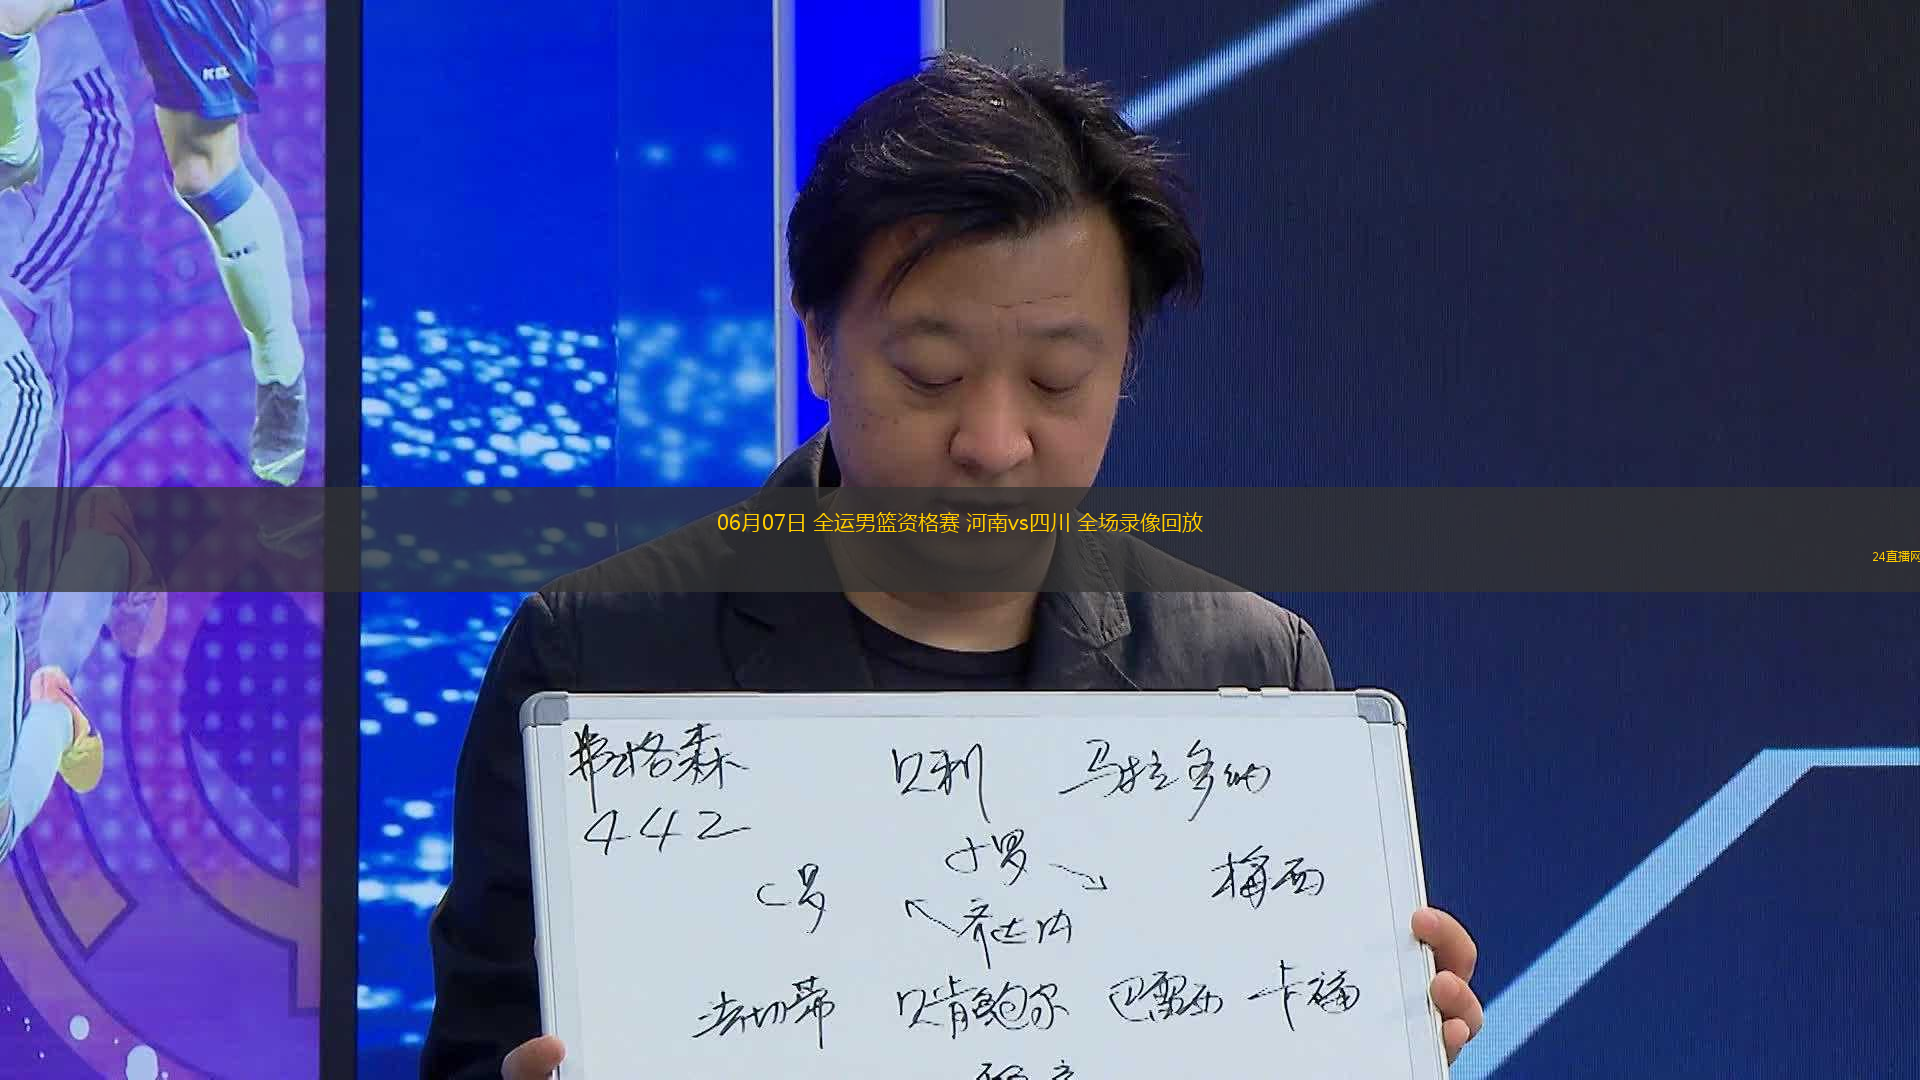 06月07日 全运男篮资格赛 河南vs四川 全场录像回放
24直播网
弗格森 贝利 马拉多纳
442
小罗
C罗 梅西
齐达内
法切蒂 贝肯鲍尔 巴雷西 卡福